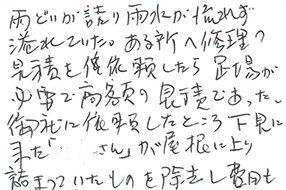 雨どいが詰り雨水が流れず
溢れていた。ある所へ修理の
見積を依頼したら足場が
必要で高額の見積であった。
御社に依頼したところ下見に
来た" さん"が屋根に上り
詰まっていたものを除去し費用も